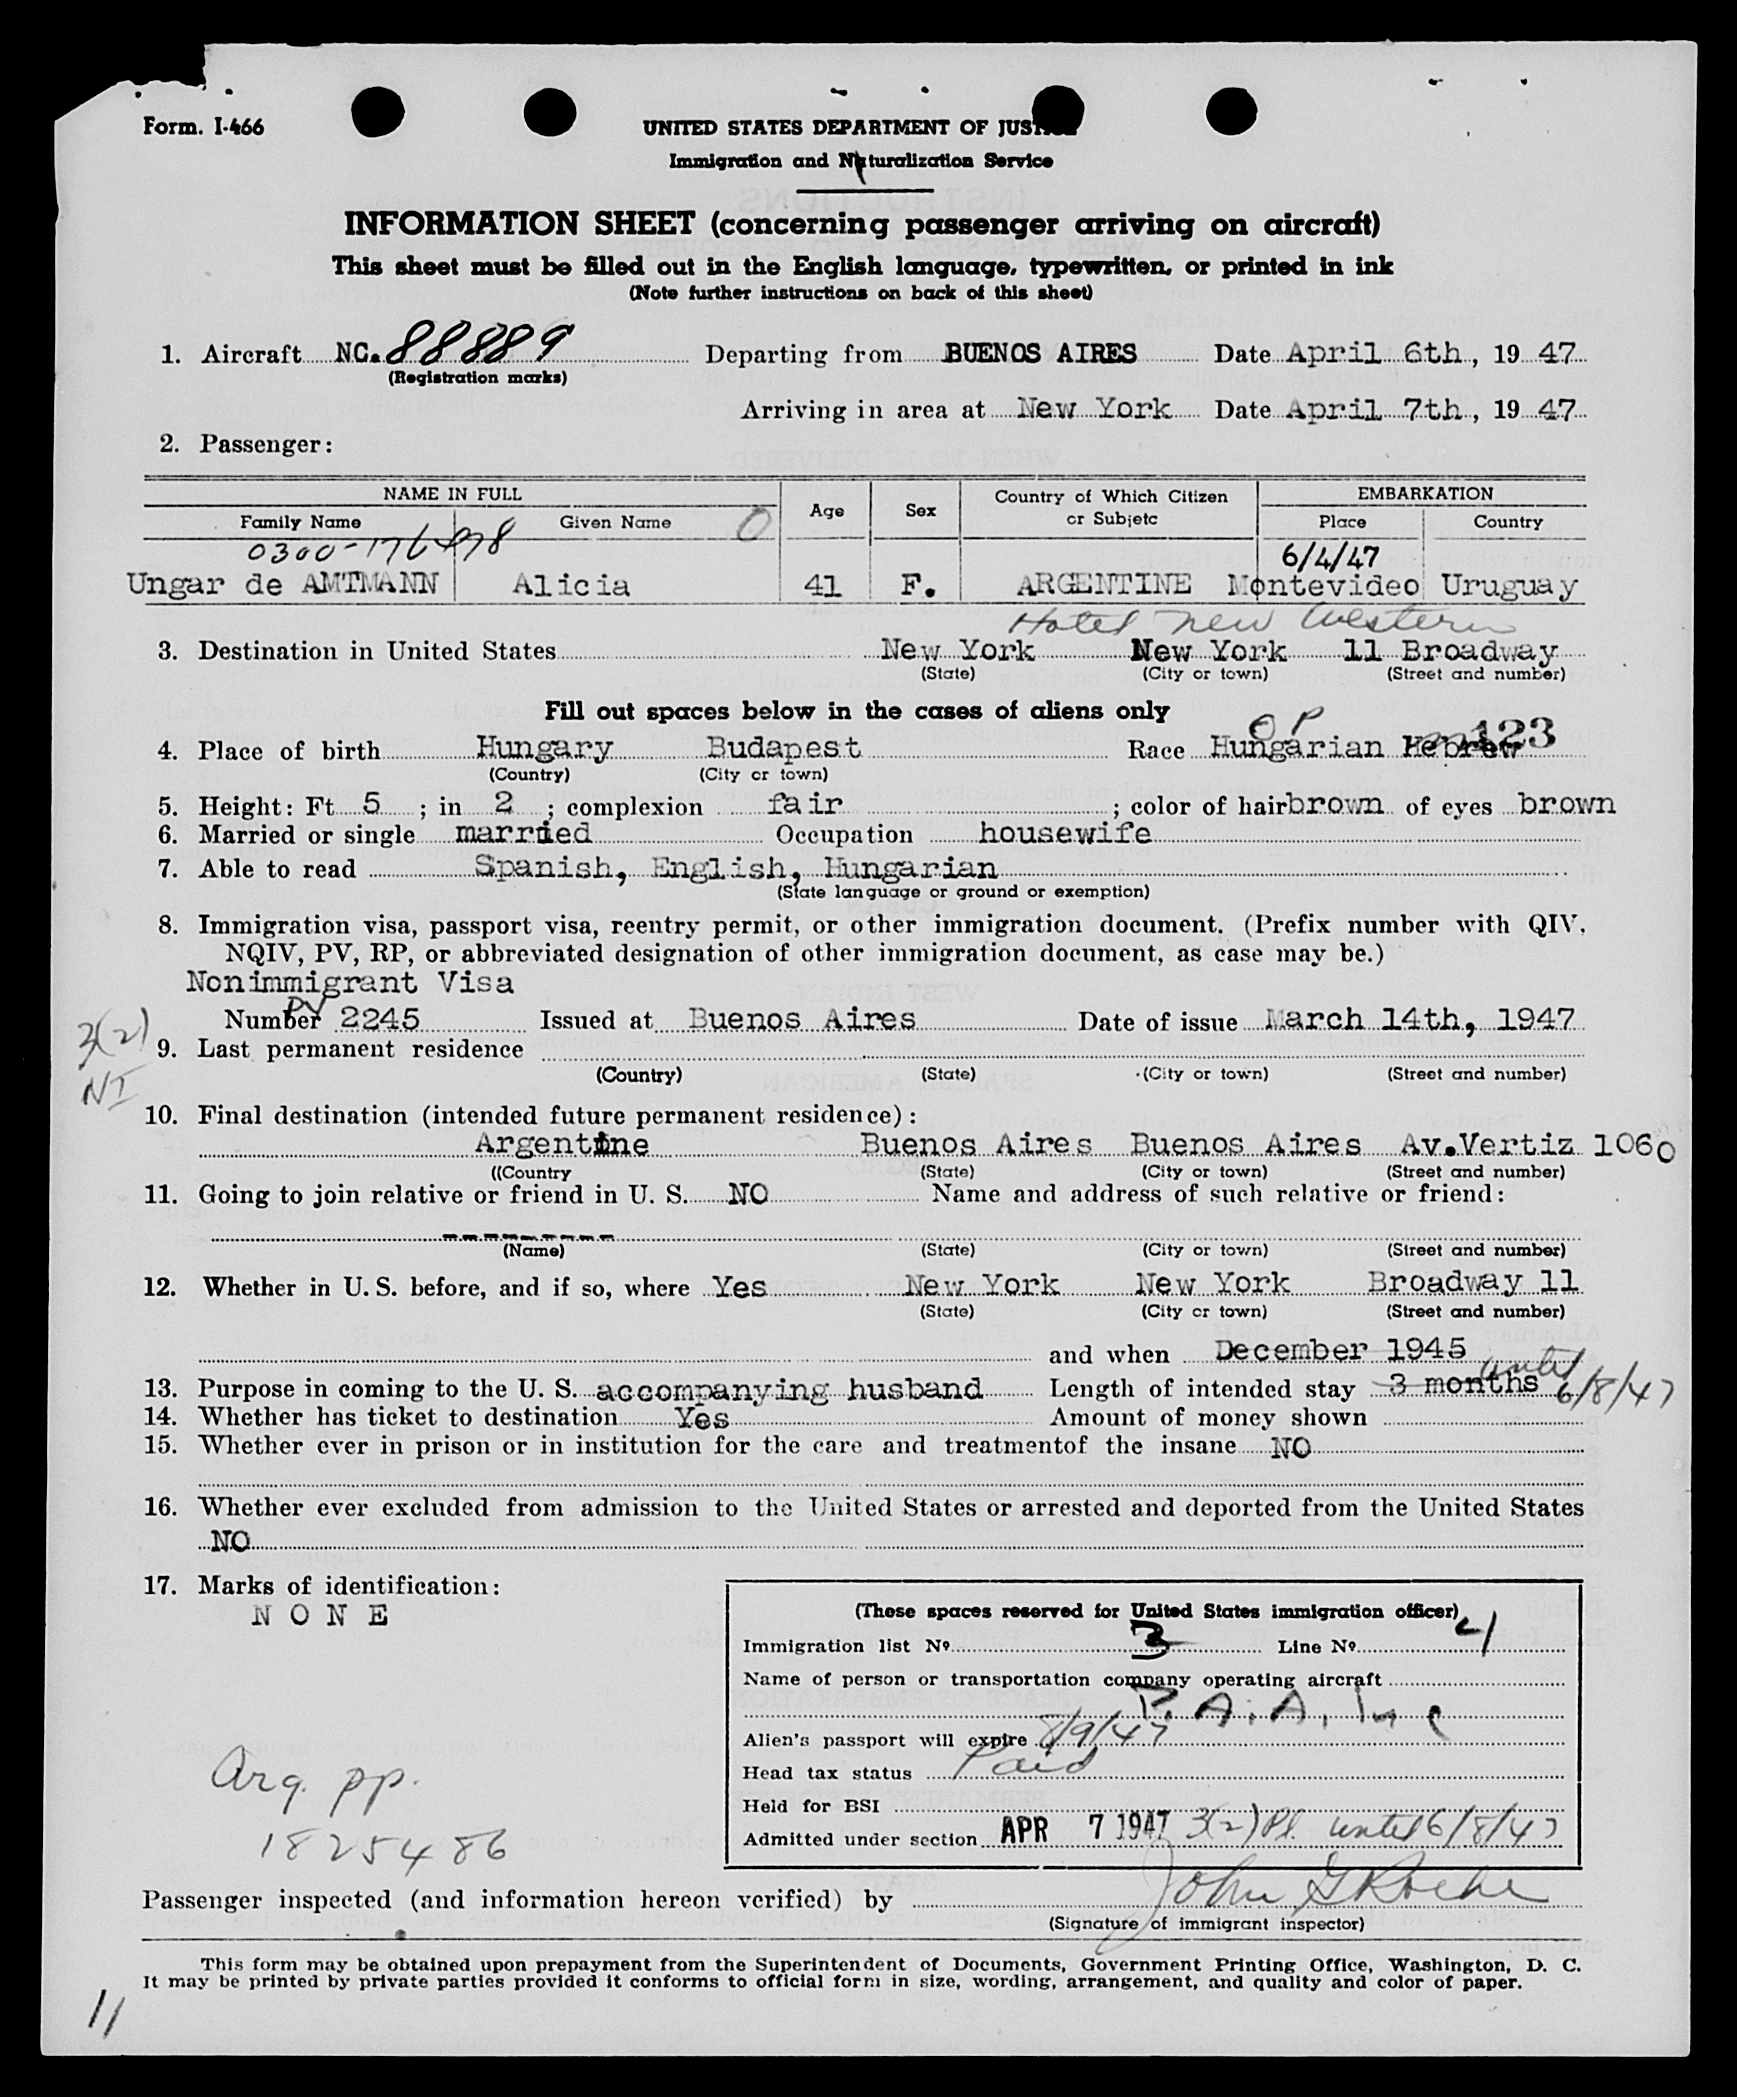 Form. I-466
UNITED STATES DEPARTMENT OF JUSTICE
Immigration and Naturalization Service
INFORMATION SHEET (concerning passenger arriving on aircraft)
This sheet must be filled out in the English language, typewritten, or printed in ink
(Note further instructions on back of this sheet)
1. Aircraft NC. 88889 Departing from BUENOS AIRES Date April 6th, 19 47
(Registration marks)
Arriving in area at New York Date April 7th, 19 47
2. Passenger:
NAME IN FULL Age Sex Country of Which Citizen or Subjetc EMBARKATION
Family Name Given Name O Place Country
0300-176978 6/4/47
Ungar de AMTMANN Alicia 41 F. ARGENTINE Montevideo Uruguay
Hotel New Western
3. Destination in United States New York New York 11 Broadway
(State) (City or town) (Street and number)
Fill out spaces below in the cases of aliens only
OP 123
4. Place of birth Hungary Budapest Race Hungarian Hebrew
(Country) (City or town)
5. Height: Ft 5 ; in 2 ; complexion fair ; color of hair brown of eyes brown
6. Married or single married Occupation housewife
7. Able to read Spanish, English, Hungarian
(State language or ground or exemption)
8. Immigration visa, passport visa, reentry permit, or other immigration document. (Prefix number with QIV,
NQIV, PV, RP, or abbreviated designation of other immigration document, as case may be.)
Nonimmigrant Visa
PV
Number 2245 Issued at Buenos Aires Date of issue March 14th, 1947
3(2)
NI
9. Last permanent residence
(Country) (State) (City or town) (Street and number)
10. Final destination (intended future permanent residence):
Argentine Buenos Aires Buenos Aires Av.Vertiz 1060
((Country (State) (City or town) (Street and number)
11. Going to join relative or friend in U. S. NO Name and address of such relative or friend:
---------
(Name) (State) (City or town) (Street and number)
12. Whether in U. S. before, and if so, where Yes New York New York Broadway 11
(State) (City or town) (Street and number)
and when December 1945
13. Purpose in coming to the U. S. accompanying husband Length of intended stay 3 months until 6/8/47
14. Whether has ticket to destination Yes Amount of money shown
15. Whether ever in prison or in institution for the care and treatmentof the insane NO
16. Whether ever excluded from admission to the United States or arrested and deported from the United States
NO
17. Marks of identification:
N O N E
(These spaces reserved for United States immigration officer)
Immigration list Nº 3 Line Nº 4
Name of person or transportation company operating aircraft
P. A. A. Inc
Alien's passport will expire 8/9/47
Head tax status Paid
Held for BSI
Admitted under section APR 7 1947 3(2) Pl. until 6/8/47
Arg. pp.
1825486
Passenger inspected (and information hereon verified) by John G Roche
(Signature of immigrant inspector)
This form may be obtained upon prepayment from the Superintendent of Documents, Government Printing Office, Washington, D. C.
It may be printed by private parties provided it conforms to official form in size, wording, arrangement, and quality and color of paper.
11